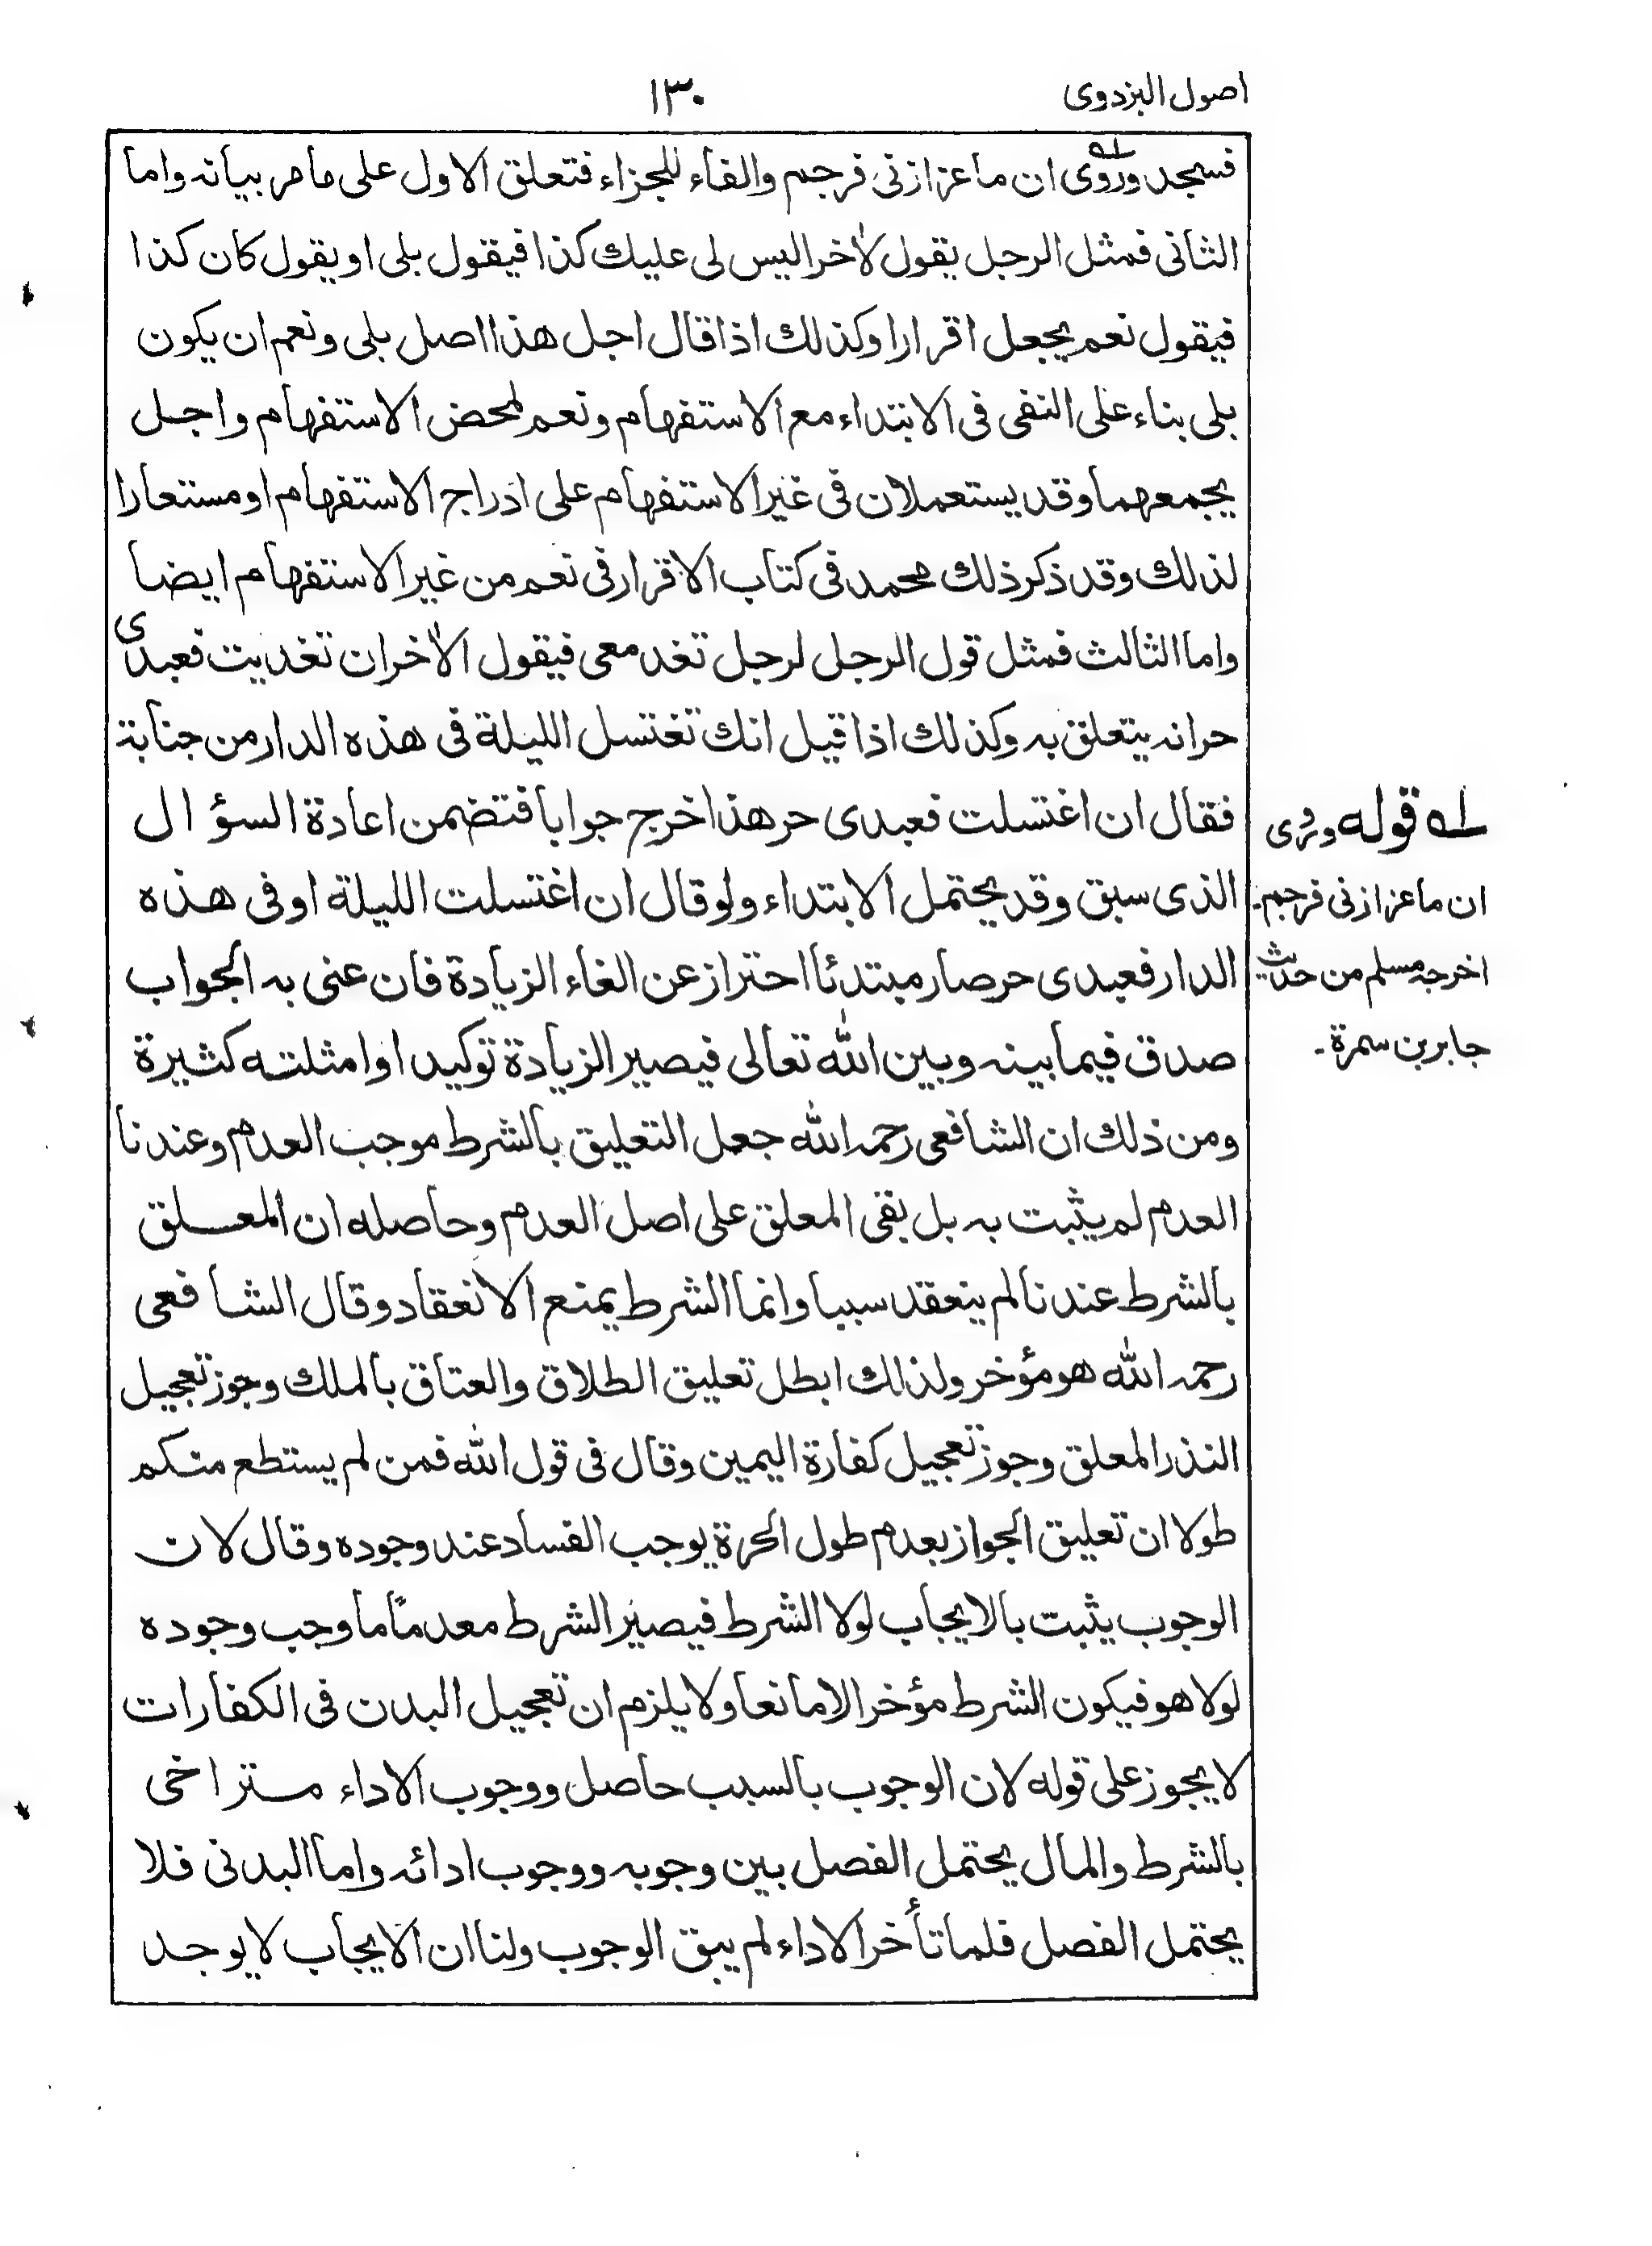 اصول البزدوى
١٣٠
فسجد وروى ان ماعزا زنى فرجم والفاء للجزاء فتعلق الاول على ما مر بيانه واما
الثانى فمثل الرجل يقول لآخر اليس لى عليك كذا فيقول بلى او يقول كان كذا
فيقول نعم يجعل اقرارا وكذلك اذا قال اجل هذا اصل بلى ونعم ان يكون
بلى بناء على النفى فى الابتداء مع الاستفهام ونعم لمحض الاستفهام واجل
يجمعهما وقد يستعملان فى غير الاستفهام على ادراج الاستفهام او مستعارا
لذلك وقد ذكر ذلك محمد فى كتاب الاقرار فى نعم من غير الاستفهام ايضا
واما الثالث فمثل قول الرجل لرجل تغد معى فيقول الآخر ان تغديت فعبدى
حر انه يتعلق به وكذلك اذا قيل انك تغتسل الليلة فى هذه الدار من جنابة
فقال ان اغتسلت فعبدى حر هذا خرج جوابا فتضمن اعادة السؤال
الذى سبق وقد يحتمل الابتداء ولو قال ان اغتسلت الليلة او فى هذه
الدار فعبدى حر صار مبتدئا احتراز عن الغاء الزيادة فان عنى به الجواب
صدق فيما بينه وبين الله تعالى فيصير الزيادة توكيدا وامثلته كثيرة
ومن ذلك ان الشافعى رحمه الله جعل التعليق بالشرط موجب العدم وعندنا
العدم لم يثبت به بل بقى المعلق على اصل العدم وحاصله ان المعلق
بالشرط عندنا لم ينعقد سببا وانما الشرط يمنع الانعقاد وقال الشافعى
رحمه الله هو مؤخر ولذلك ابطل تعليق الطلاق والعتاق بالملك وجوز تعجيل
النذر المعلق وجوز تعجيل كفارة اليمين وقال فى قول الله فمن لم يستطع منكم
طولا ان تعليق الجواز بعدم طول الحرة يوجب الفساد عند وجوده وقال لان
الوجوب يثبت بالايجاب لولا الشرط فيصير الشرط معدما ما وجب وجوده
لولا هو فيكون الشرط مؤخرا لا مانعا ولا يلزم ان تعجيل البدن فى الكفارات
لا يجوز على قوله لان الوجوب بالسبب حاصل ووجوب الاداء متراخى
بالشرط والمال يحتمل الفصل بين وجوبه ووجوب ادائه واما البدنى فلا
يحتمل الفصل فلما تأخر الاداء لم يبق الوجوب ولنا ان الايجاب لا يوجد
له قوله وروى
ان ماعزا زنى فرجم۔
اخرجه مسلم من حديث
جابر بن سمرة۔